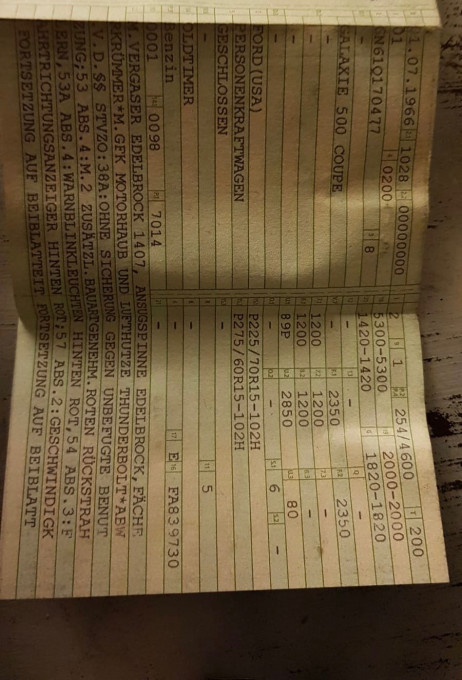 1.07.1966 1028 00000000 2 1 254/4600 200
01 0200 8 5300-5300 2000-2000
6N61Q170477 1420-1420 1820-1820
- - -
GALAXIE 500 COUPE - 2350 2350
- 1200 1200 -
- 1200 1200 -
- 89P 2850 80
FORD(USA) - - 6 -
PERSONENKRAFTWAGEN P225/70R15-102H
GESCHLOSSEN P275/60R15-102H
- -
OLDTIMER - 5
Benzin - -
0001 0098 7014 - - E FA839730
M. VERGASER EDELBROCK 1407, ANSUGSPINNE EDELBROCK, FÄCHE
RKRÜMMER*M.GFK MOTORHAUB UND LUFTHUTZE THUNDERBOLT*ABW
V.D.§§ STVZO:38A:OHNE SICHERUNG GEGEN UNBEFUGTE BENUT
ZUNG;53 ABS.4:M.2 ZUSÄTZL.BAUARTGENEHM.ROTEN RÜCKSTRAH
ERN,53A ABS.4:WARNBLINKLEUCHTEN HINTEN ROT,54 ABS.3:F
AHRTRICHTUNGSANZEIGER HINTEN ROT;57 ABS.2:GESCHWINDIGK
FORTSETZUNG AUF BEIBLATTEIT FORTSETZUNG AUF BEIBLATT